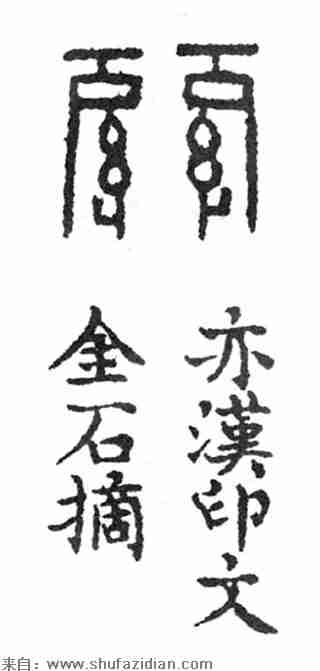 亦漢印文
金石摘
来自：www.shufazidian.com